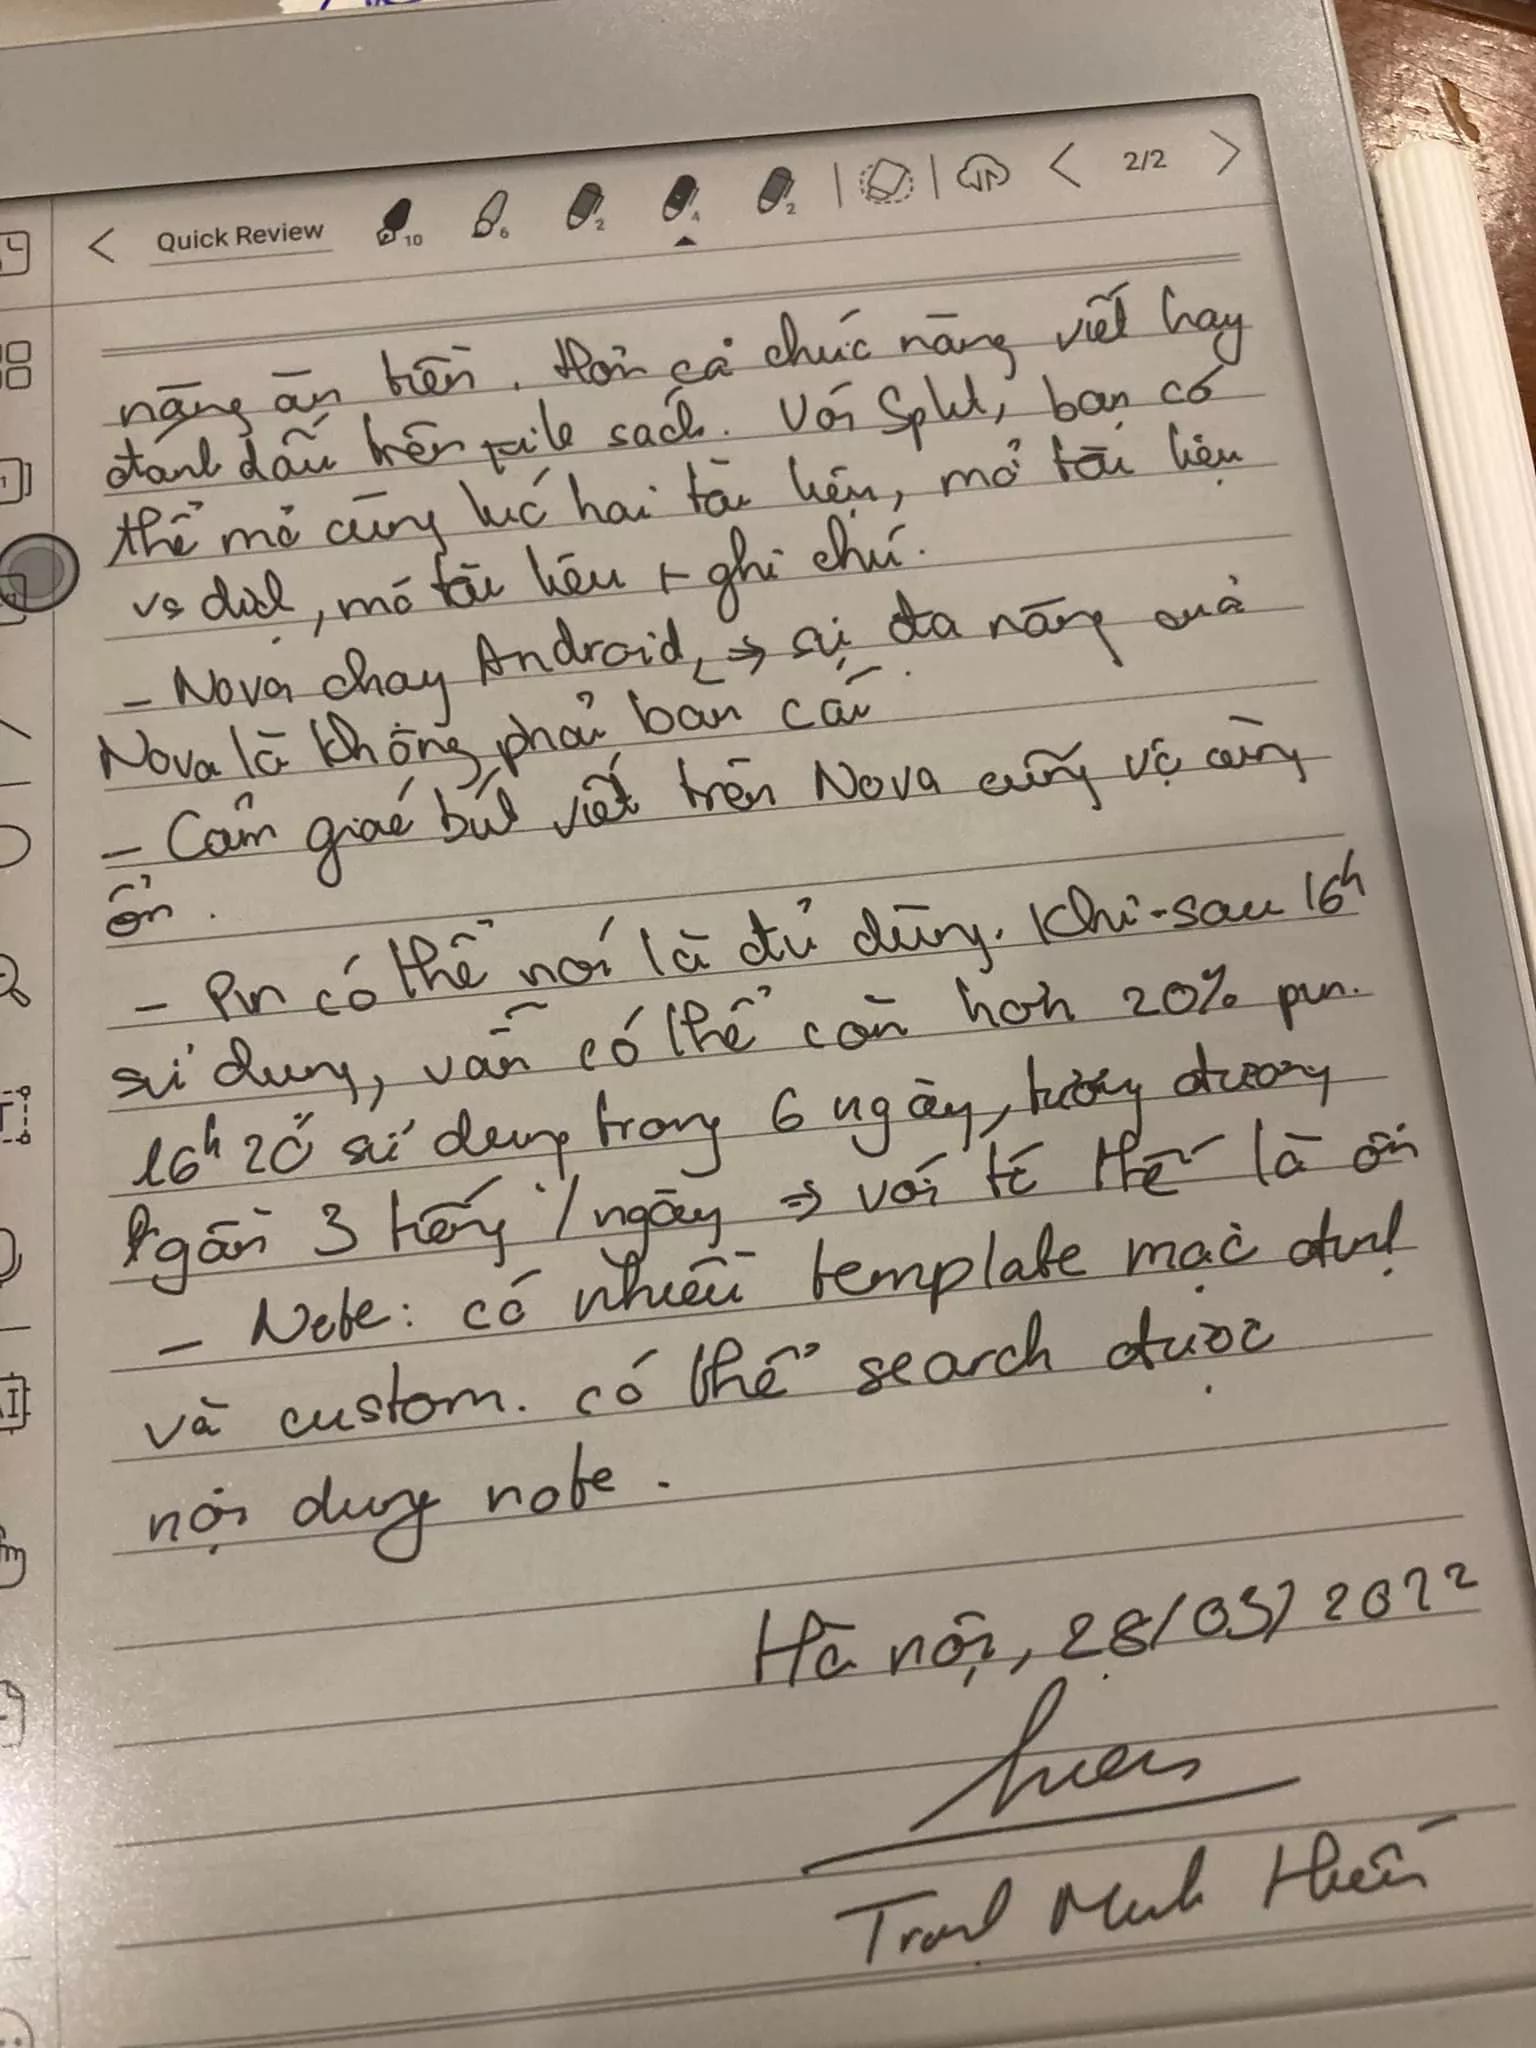 2/2
Quick Review
10
6
2
4
2
năng ăn tiền. Hơn cả chức năng viết hay
đánh dấu trên file sách. Với Split, bạn có
thể mở cùng lúc hai tài liệu, mở tài liệu
vs dict, mở tài liệu + ghi chú.
- Nova chạy Android, → sự đa năng quả
Nova là không phải bàn cãi.
- Cảm giác bút viết trên Nova cũng vô cùng
ổn.
- Pin có thể nói là đủ dùng. Khi sau 16h
sử dụng, vẫn có thể còn hơn 20% pin.
16h20 sử dụng trong 6 ngày, tương đương
gần 3 tiếng /ngày ⇒ với tớ thế là ổn
- Note: có nhiều template mặc định
và custom. có thể search được
nội dung note.
Hà nội, 28/03/2022
Minh Hiến